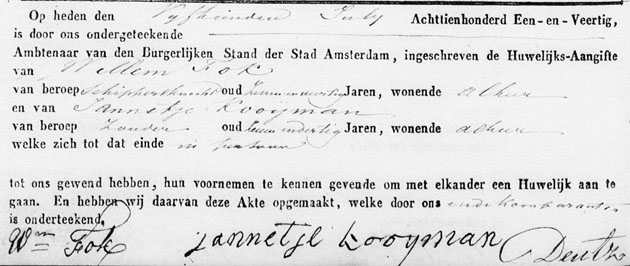 Op heden den Vyftienden July Achttienhonderd Een-en-Veertig,
is door ons ondergeteekende
Ambtenaar van den Burgerlijken Stand der Stad Amsterdam, ingeschreven de Huwelijks-Aangifte
van Willem Fok
van beroep Schippersknecht oud Jaren, wonende alhier
en van Jannetje Kooyman
van beroep Zonder oud Jaren, wonende alhier
welke zich tot dat einde in persoon
tot ons gewend hebben, hun voornemen te kennen gevende om met elkander een Huwelijk aan te
gaan. En hebben wij daarvan deze Akte opgemaakt, welke door ons en de Komparanten
is onderteekend.
Wm Fok Jannetje Kooyman